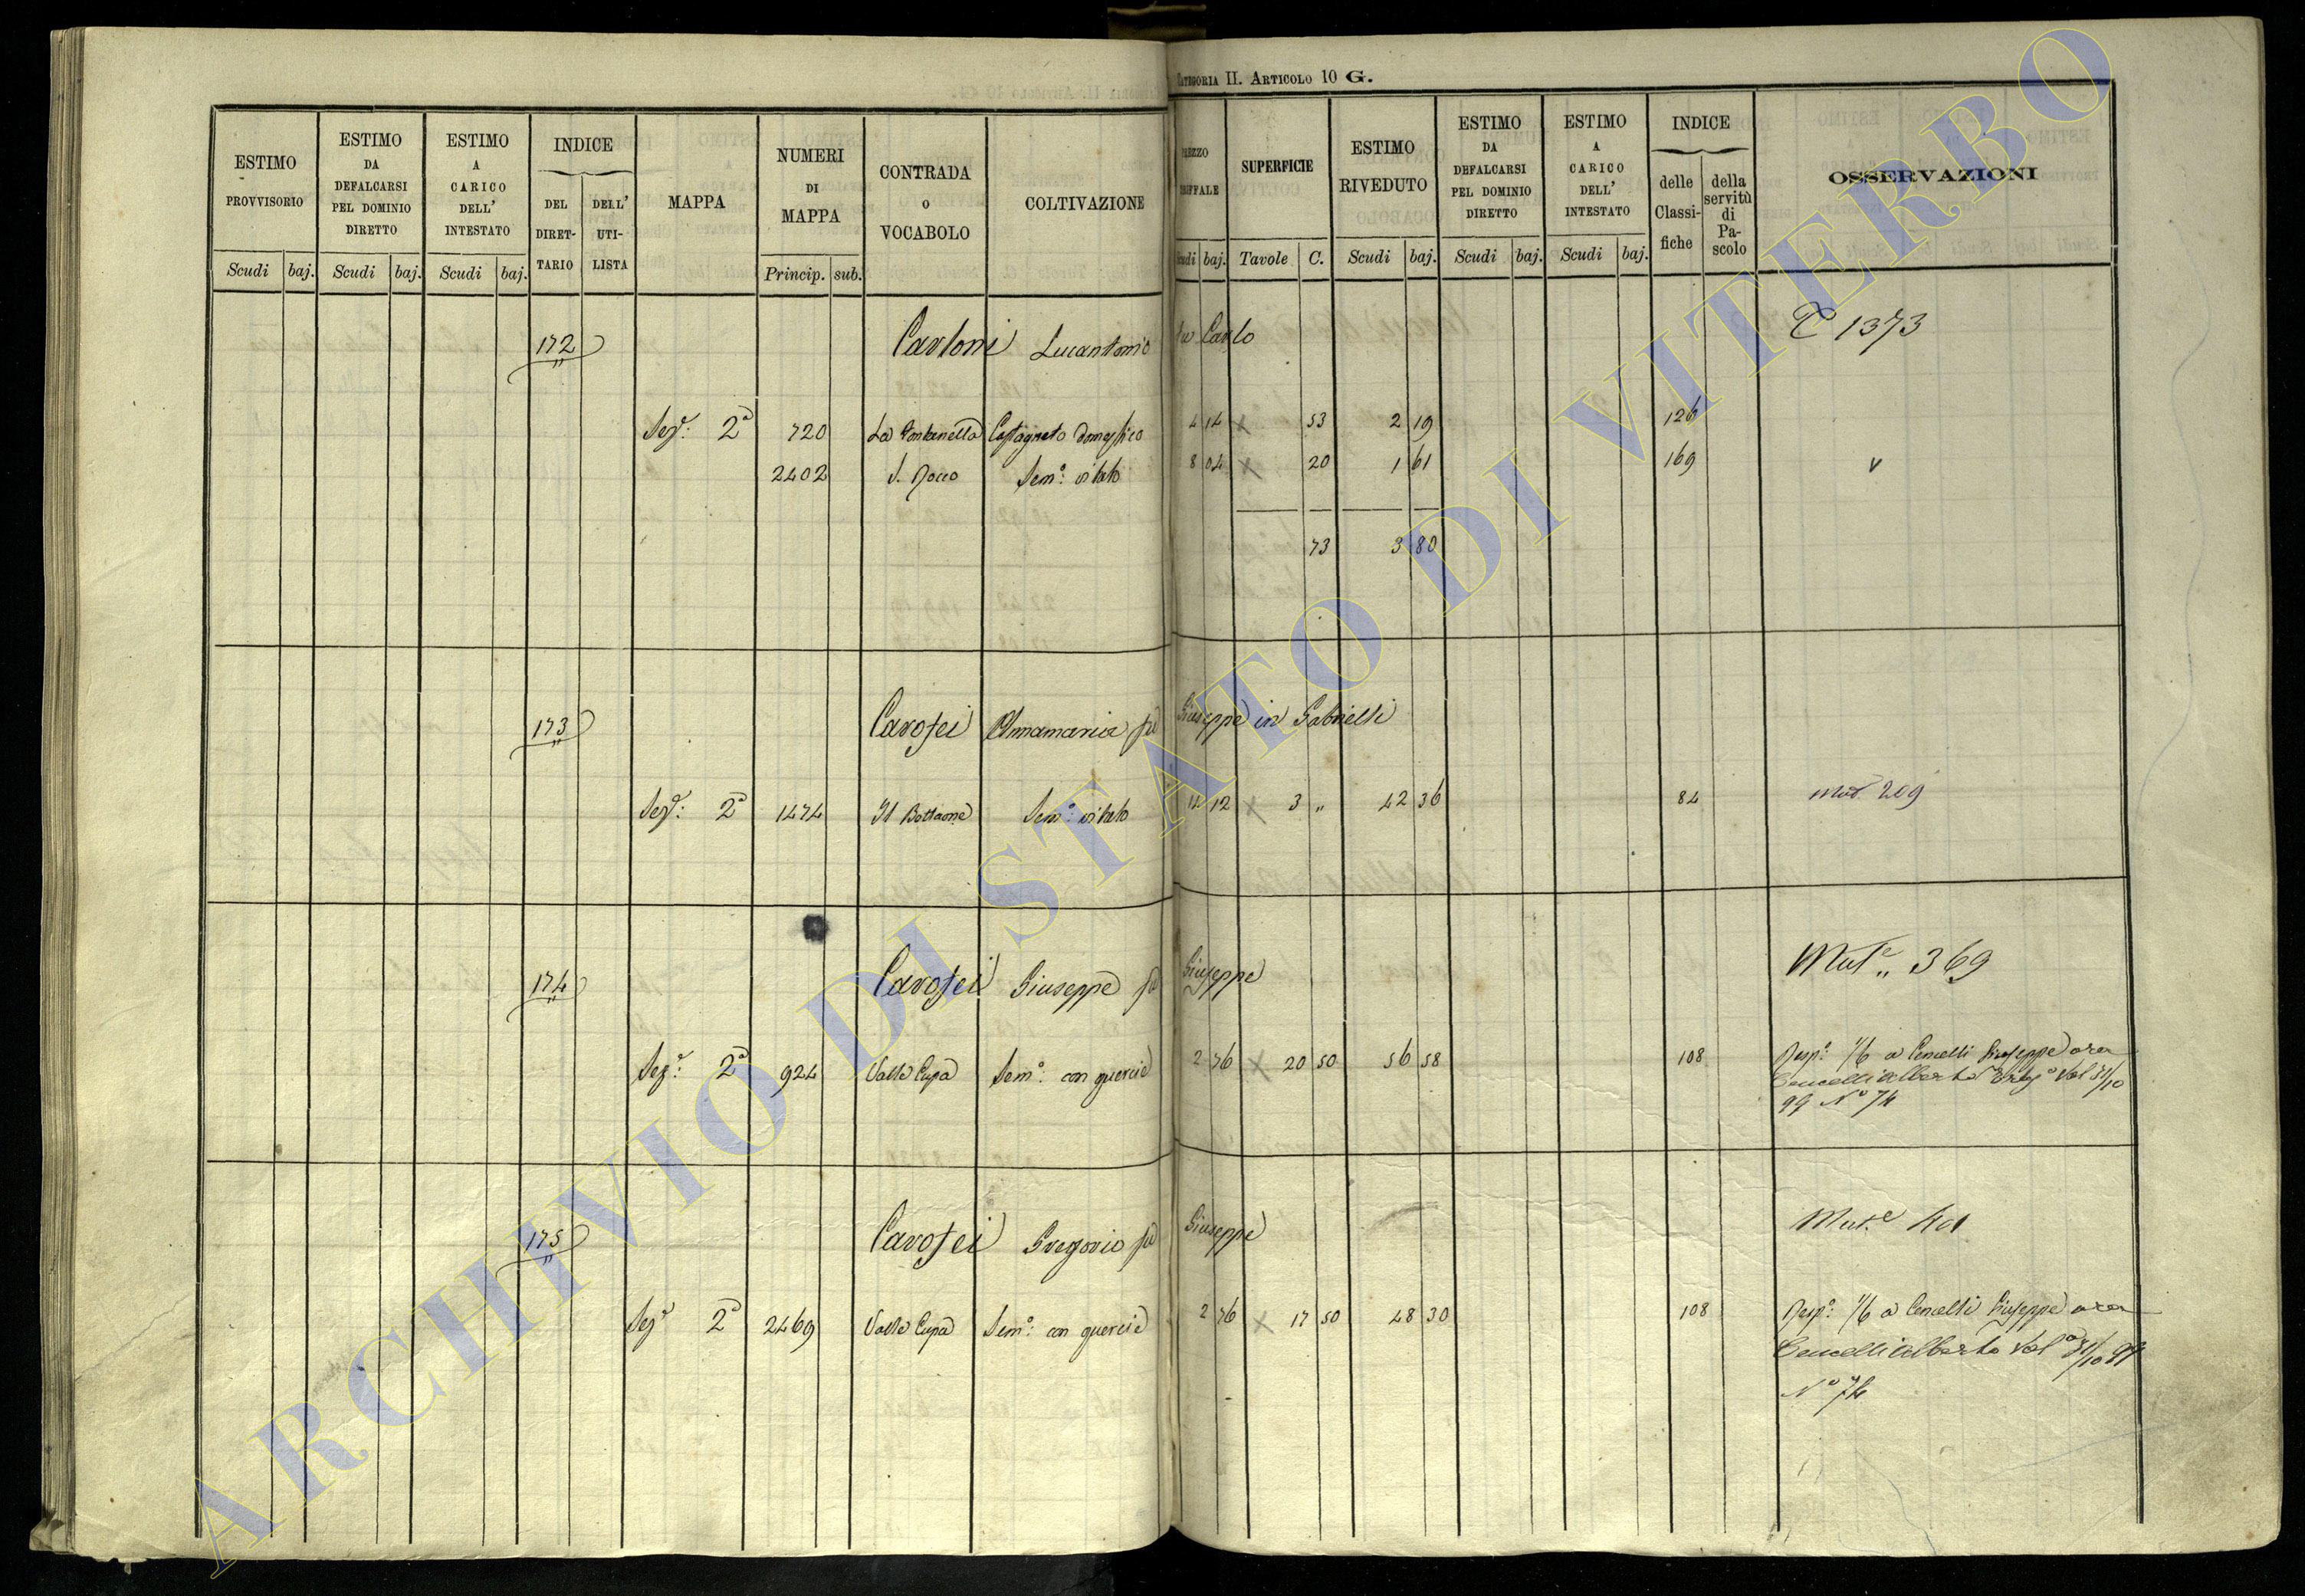 CATEGORIA II. ARTICOLO 10 G.
ESTIMO PROVVISORIO
ESTIMO DA DEFALCARSI PEL DOMINIO DIRETTO
ESTIMO A CARICO DELL' INTESTATO
INDICE
DEL DIRETTARIO
DELL' UTILISTA
MAPPA
NUMERI DI MAPPA
CONTRADA O VOCABOLO
COLTIVAZIONE
SUPERFICIE
ESTIMO RIVEDUTO
ESTIMO DA DEFALCARSI PEL DOMINIO DIRETTO
ESTIMO A CARICO DELL' INTESTATO
INDICE
delle Classifiche
della servitù di Pascolo
OSSERVAZIONI
Scudi baj. Scudi baj. Scudi baj. Princip. sub. baj. Tavole C. Scudi baj. Scudi baj. Scudi baj.
172 Carloni Lucantonio fu Carlo 1373
Sez.e 2a 720 La Fontanella Castagneto domestico 4 14 x 53 2 19 126
2402 S. Rocco Sem.o vitato 8 04 x 20 1 61 169 v
73 3 80
173 Carosei Annamaria fu Giuseppe in Gabrielli
Sez.e 2a 1474 Il Bottaone Sem.o vitato 14 12 x 3 „ 42 36 84 Mut. 209
174 Carosei Giuseppe fu Giuseppe Mut.e „ 369
Sez.e 2a 924 Valle Cupa Sem.o con quercie 2 76 x 20 50 56 58 108 Resp.o 1/6 a Cencelli Giuseppe ora
Cencelli Alberto Vol 31/10
99 No 74
175 Carosei Gregorio fu Giuseppe Mut.e 401
Sez.e 2a 2469 Valle Cupa Sem.o con quercie 2 76 x 17 50 48 30 108 Resp.o 1/6 a Cencelli Giuseppe ora
Cencelli Alberto Vol 31/10 99
No 74
ARCHIVIO DI STATO DI VITERBO